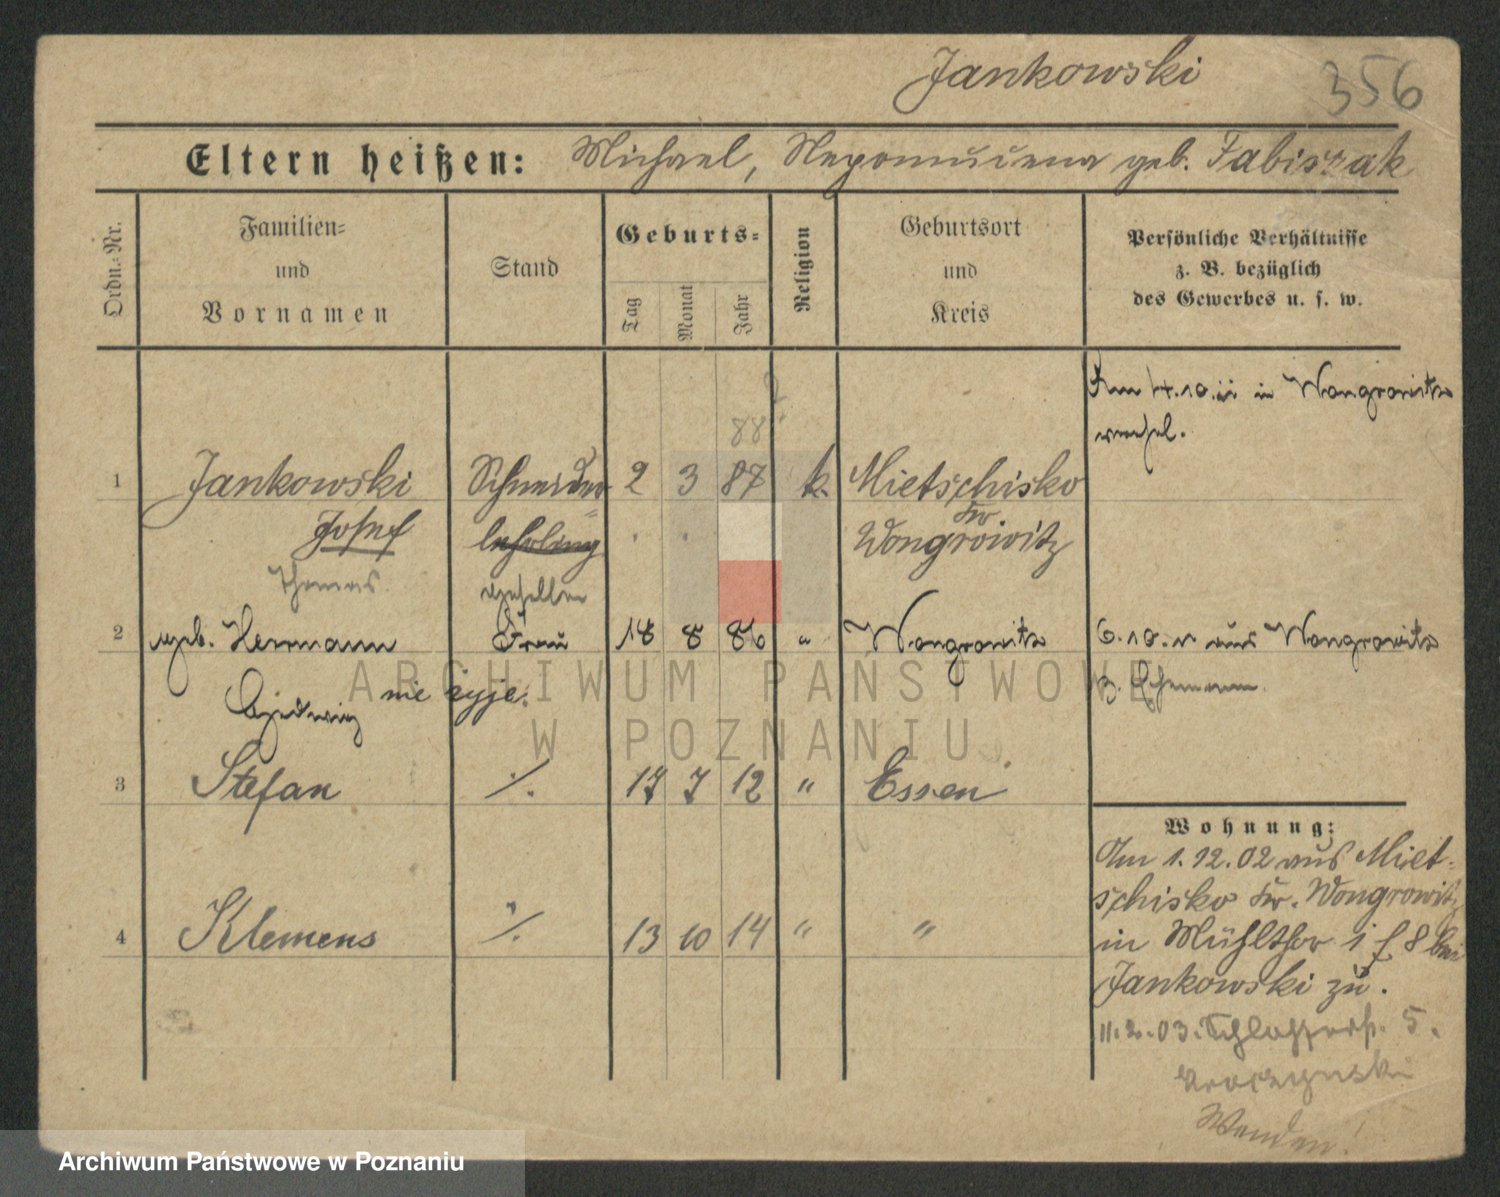 Jankowski 356
Eltern heißen: Michael, Nepomucena geb. Fabiszak
Ordn.-Nr.
Familien- und Vornamen
Stand
Geburts-
Tag Monat Jahr
Religion
Geburtsort und Kreis
Persönliche Verhältnisse z. B. bezüglich des Gewerbes u. s. w.
Am 4.10.11 in Wongrowitz
88 ?
1 Jankowski Schneider 2 3 87 k. Mietschisko
Josef lehrling Kr. Wongrowitz
Thomas gesellen
2 geb. Herrmann Frau 18 8 86 " Wongrowitz 6.10.11 aus Wongrowitz
Hedwig nie żyje. z. Ehemann.
3 Stefan ·/. 17 7 12 " Essen
Wohnung:
Am 1.12.02 aus Miet-
schisko Kr. Wongrowitz
4 Klemens ·/. 13 10 14 " " in Mühlthor 8 bei
Jankowski zu.
11.2.03. Schlosserstr. 5.
Wenden!
ARCHIWUM PAŃSTWOWE
W POZNANIU
Archiwum Państwowe w Poznaniu